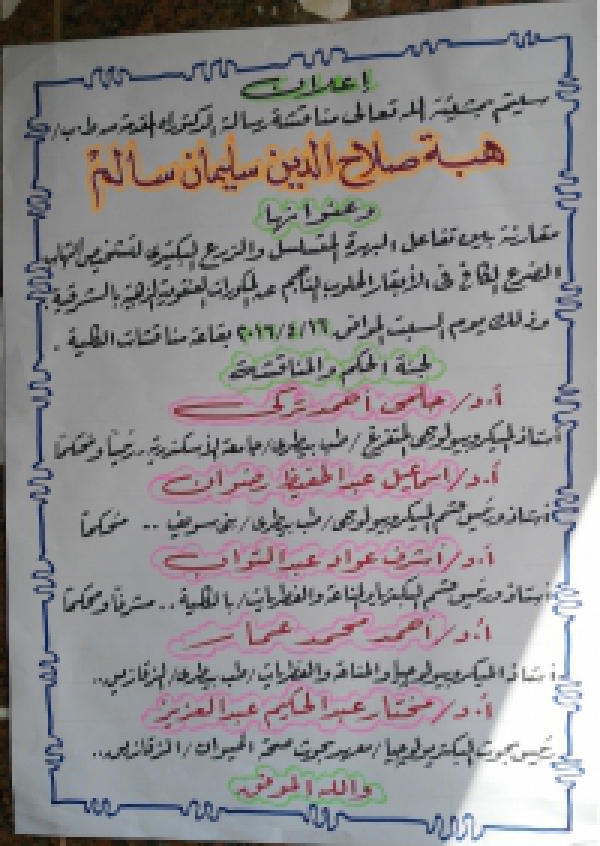 إعلان
سيتم بمشيئة الله تعالى مناقشة رسالة الدكتوراه المقدمة من ط.ب/
هبة صلاح الدين سليمان سالم
وعنوانها
مقارنة بين تفاعل البلمرة المتسلسل والزرع البكتيرى لتشخيص التهاب
الضرع فى الأبقار الحلوب الناجم عن المكورات العنقودية الذهبية بالشرقية
وذلك يوم السبت الموافق ٢٠١٦/٤/١٦ بقاعة مناقشات الكلية .
لجنة الحكم والمناقشة
أ.د/ حلمى أحمد تركى
أستاذ الميكروبيولوجى المتفرغ / طب بيطرى / جامعة الأسكندرية .. رئيساً ومحكماً
أ.د/ اسماعيل عبدالحفيظ رضوان
أستاذ ورئيس قسم الميكروبيولوجى / طب بيطرى / بنى سويف .. محكماً
أ.د/ أشرف عواد عبدالتواب
أستاذ ورئيس قسم البكتريا والمناعة والفطريات / بالكلية .. مشرفاً ومحكماً
أ.د/ أحمد محمد عمار
أستاذ الميكروبيولوجيا والمناعة والفطريات / طب بيطرى / الزقازيق ..
أ.د/ مختار عبدالحكيم عبدالعزيز
رئيس بحوث البكتريولوجيا / معهد بحوث صحة الحيوان / الزقازيق ..
والله الموفق